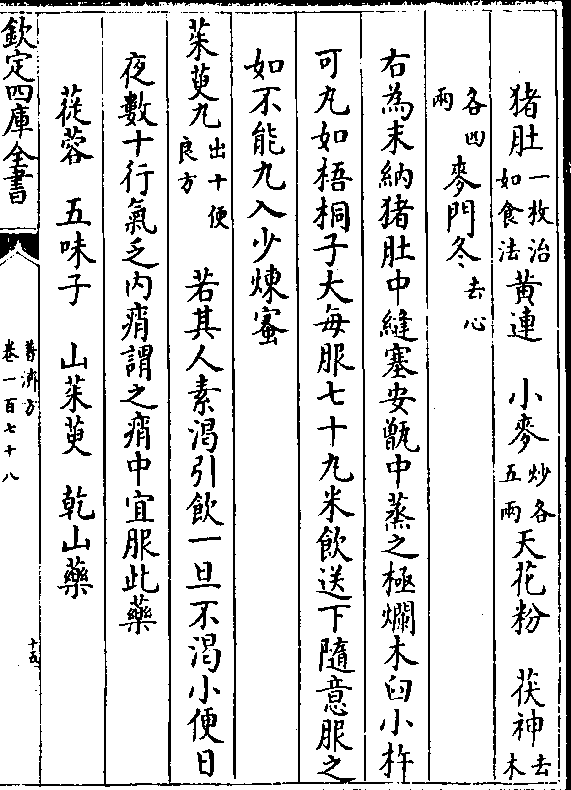 猪肚一枚治如食法黃連　小麥炒各五兩天花粉　茯神去木
各四兩麥門冬去心
右為末納猪肚中縫塞安甑中蒸之極爛木臼小杵
可丸如梧桐子大每服七十丸米飲送下隨意服之
如不能丸入少煉蜜
茱萸丸出十便良方　若其人素渴引飲一旦不渴小便日
夜數十行氣乏肉痟謂之痟中宜服此藥
蓯蓉　五味子　山茱萸　乾山藥
欽定四庫全書
普濟方
卷一百七十八
十五